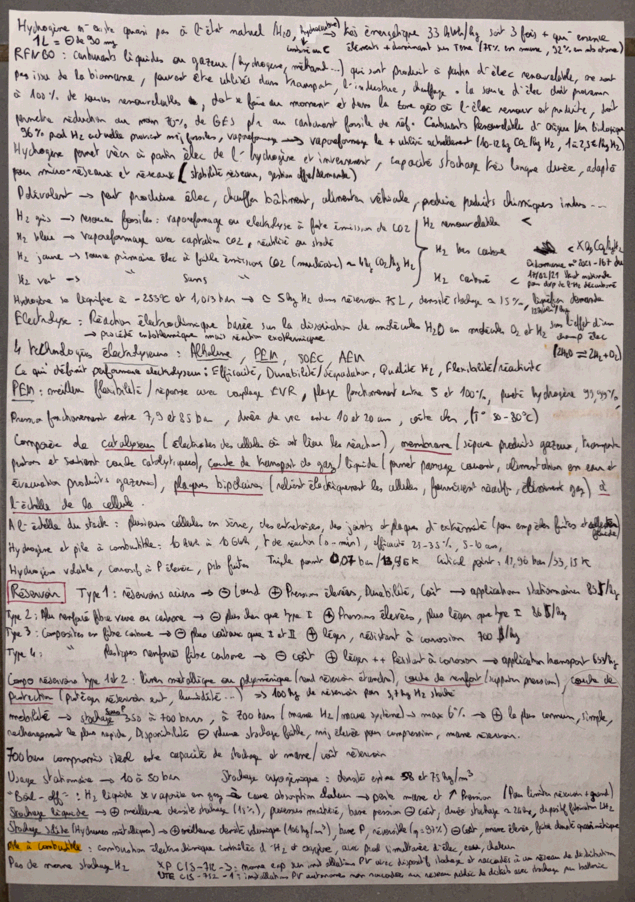 Hydrogène n'existe quasi pas à l'état naturel /H2O, hydrocarbure) → très énergétique 33 kWh/kg soit 3 fois + que essence
1L = de 90 mg élément + dominant sur Terre (75% en masse, 92% en nb atome)
RFNBO : carburants liquides ou gazeux (hydrogène, méthanol...) qui sont produit à partir d'élec renouvelable, ne sont
pas issu de la biomasse, peuvent être utilisés dans transport, l'industrie, chauffage. la source d'élec doit provenir
à 100% de sources renouvelables, doit se faire au moment et dans la zone géo où l'élec renouv est produite, doit
permettre réduction au moins 70% de GES p/r au carburant fossile de réf. Carburants Renouvelable d'Origine Non biologique
96% prod H2 actuelle provient énergies fossiles, vaporeformage → vaporeformage le + utilisé actuellement (10-12kg CO2/kg H2, 1 à 2,5€/kg H2)
Hydrogène permet élec de l'hydrogène et inversement, capacité stockage très longue durée, adapté
pour micro-réseaux et réseaux (stabilité réseau, gestion offre/demande)
Polyvalent → peut produire élec, chauffer bâtiment, alimenter véhicule, produire produits chimiques indus...
H2 gris → ressources fossiles : vaporeformage ou electrolyse à forte émission de CO2
H2 bleu → vaporeformage avec captation CO2, réutilisé ou stocké
H2 jaune → source primaire élec à faible émissions CO2 (nucléaire) ≈ 4kg CO2/kg H2
H2 vert → " Sans "
H2 renouvelable <
H2 bas carbone < XkgCO2/kgH2
H2 carboné <
Ordonnance n° 2021-167 du 17/02/21
Hydrogène se liquéfie à -253°C et 1,013 bar → 5kg H2 dans réservoir 75L, densité stockage ≈ 15%, liquéfaction demande
Electrolyse : Réaction électrochimique basée sur la dissociation de molécules H2O en molécule O2 et H2 sous l'effet d'un champ élec
→ procédé endothermique mais réaction exothermique (2H2O ⇌ 2H2 + O2)
4 technologies électrolyseurs : Alkaline, PEM, SOEC, AEM
Ce qui définit performance electrolyseur : Efficacité, Durabilité/dégradation, Qualité H2, Flexibilité/réactivité
PEM : meilleur flexibilité/réponse avec couplage EVR, plage fonctionnement entre 5 et 100%, pureté hydrogène 99,99%
Pression fonctionnement entre 7,9 et 85 bar, durée de vie entre 10 et 20 ans, coûte cher, (T° 50-80°C)
Composée de catalyseur (électrodes des cellules où ont lieu les réaction), membrane (sépare produits gazeux, transporte
proton et soutient couche catalytiques), couche de transport de gaz/liquide (permet passage courant, alimentation en eau et
évacuation produits gazeux), plaques bipolaires (relient électriquement les cellules, fournissent réactif, éliminent gaz) à
l'échelle de la cellule.
A l'échelle du stack : plusieurs cellules en série, des entretoises, des joints et plaques d'extrémité (pour empêcher fuites et
Hydrogène et pile à combustible : 10 kW à 10 GWh, t de réaction (s-min), efficacité 25-35%, 5-10 ans,
Hydrogène volatile, corrosif à P élevée, pcb fuites Triple point 0,07 bar/13,95K Critical point : 12,96 bar/33,15 K
Réservoir Type 1 : réservoirs aciers → ⊖ Lourd ⊕ Pression élevées, Durabilité, Coût → applications stationnaires 83$/kg
Type 2 : Alu renforcé fibre verre ou carbone → ⊖ plus cher que type I ⊕ Pressions élevées, plus léger que type I 86$/kg
Type 3 : Composites en fibre carbone → ⊖ plus coûteux que I et II ⊕ léger, résistant à corrosion 700 $/kg
Type 4 : " plastiques renforcé fibre carbone → ⊖ coût ⊕ léger ++ Résistant à corrosion → application transport 633$/kg
Compo réservoirs type 1 et 2 : liner métallique ou polymérique (rend réservoir étanche), couche de renfort (supporte pression), couche de
protection (protéger réservoir ext, humidité...) → 100 kg de réservoir par 5,7kg H2 stocké
mobilité → stockage sous P 350 à 700 bars, à 700 bars (masse H2/masse système) → max 6% → ⊕ le plus commun, simple,
rechargement le plus rapide, Disponibilité ⊖ volume stockage faible, énergie élevée pour compression, masse réservoir.
700 bars compromis idéal entre capacité de stockage et masse/coût réservoir
Usage stationnaire → 10 à 50 bar Stockage cryogénique : densité entre 58 et 75 kg/m³
"Boil-off" : H2 liquide se vaporise en gaz à cause absorption chaleur → perte masse et ↑ Pression (Pour limiter réservoir + grand)
Stockage liquide → ⊕ meilleure densité stockage (15%), basse pression ⊖ coût, durée stockage ≈ 24h
Stockage solide (Hydrures métalliques) → ⊕ meilleure densité volumique (106 kg/m³), basse P, réversible ⊖ Coût, masse élevée, faible densité gravimétrique
pile à combustible : combustion électrochimique contrôlée d'H2 et oxygène, avec prod simultanée d'élec, eau, chaleur
Pas de norme stockage H2 XP C15-712-3 : norme exp sur installations PV avec dispositif stockage et raccordés à un réseau de distribution
UTE C15-712-2 : installations PV autonomes non raccordées au réseau public de distrib avec stockage par batterie